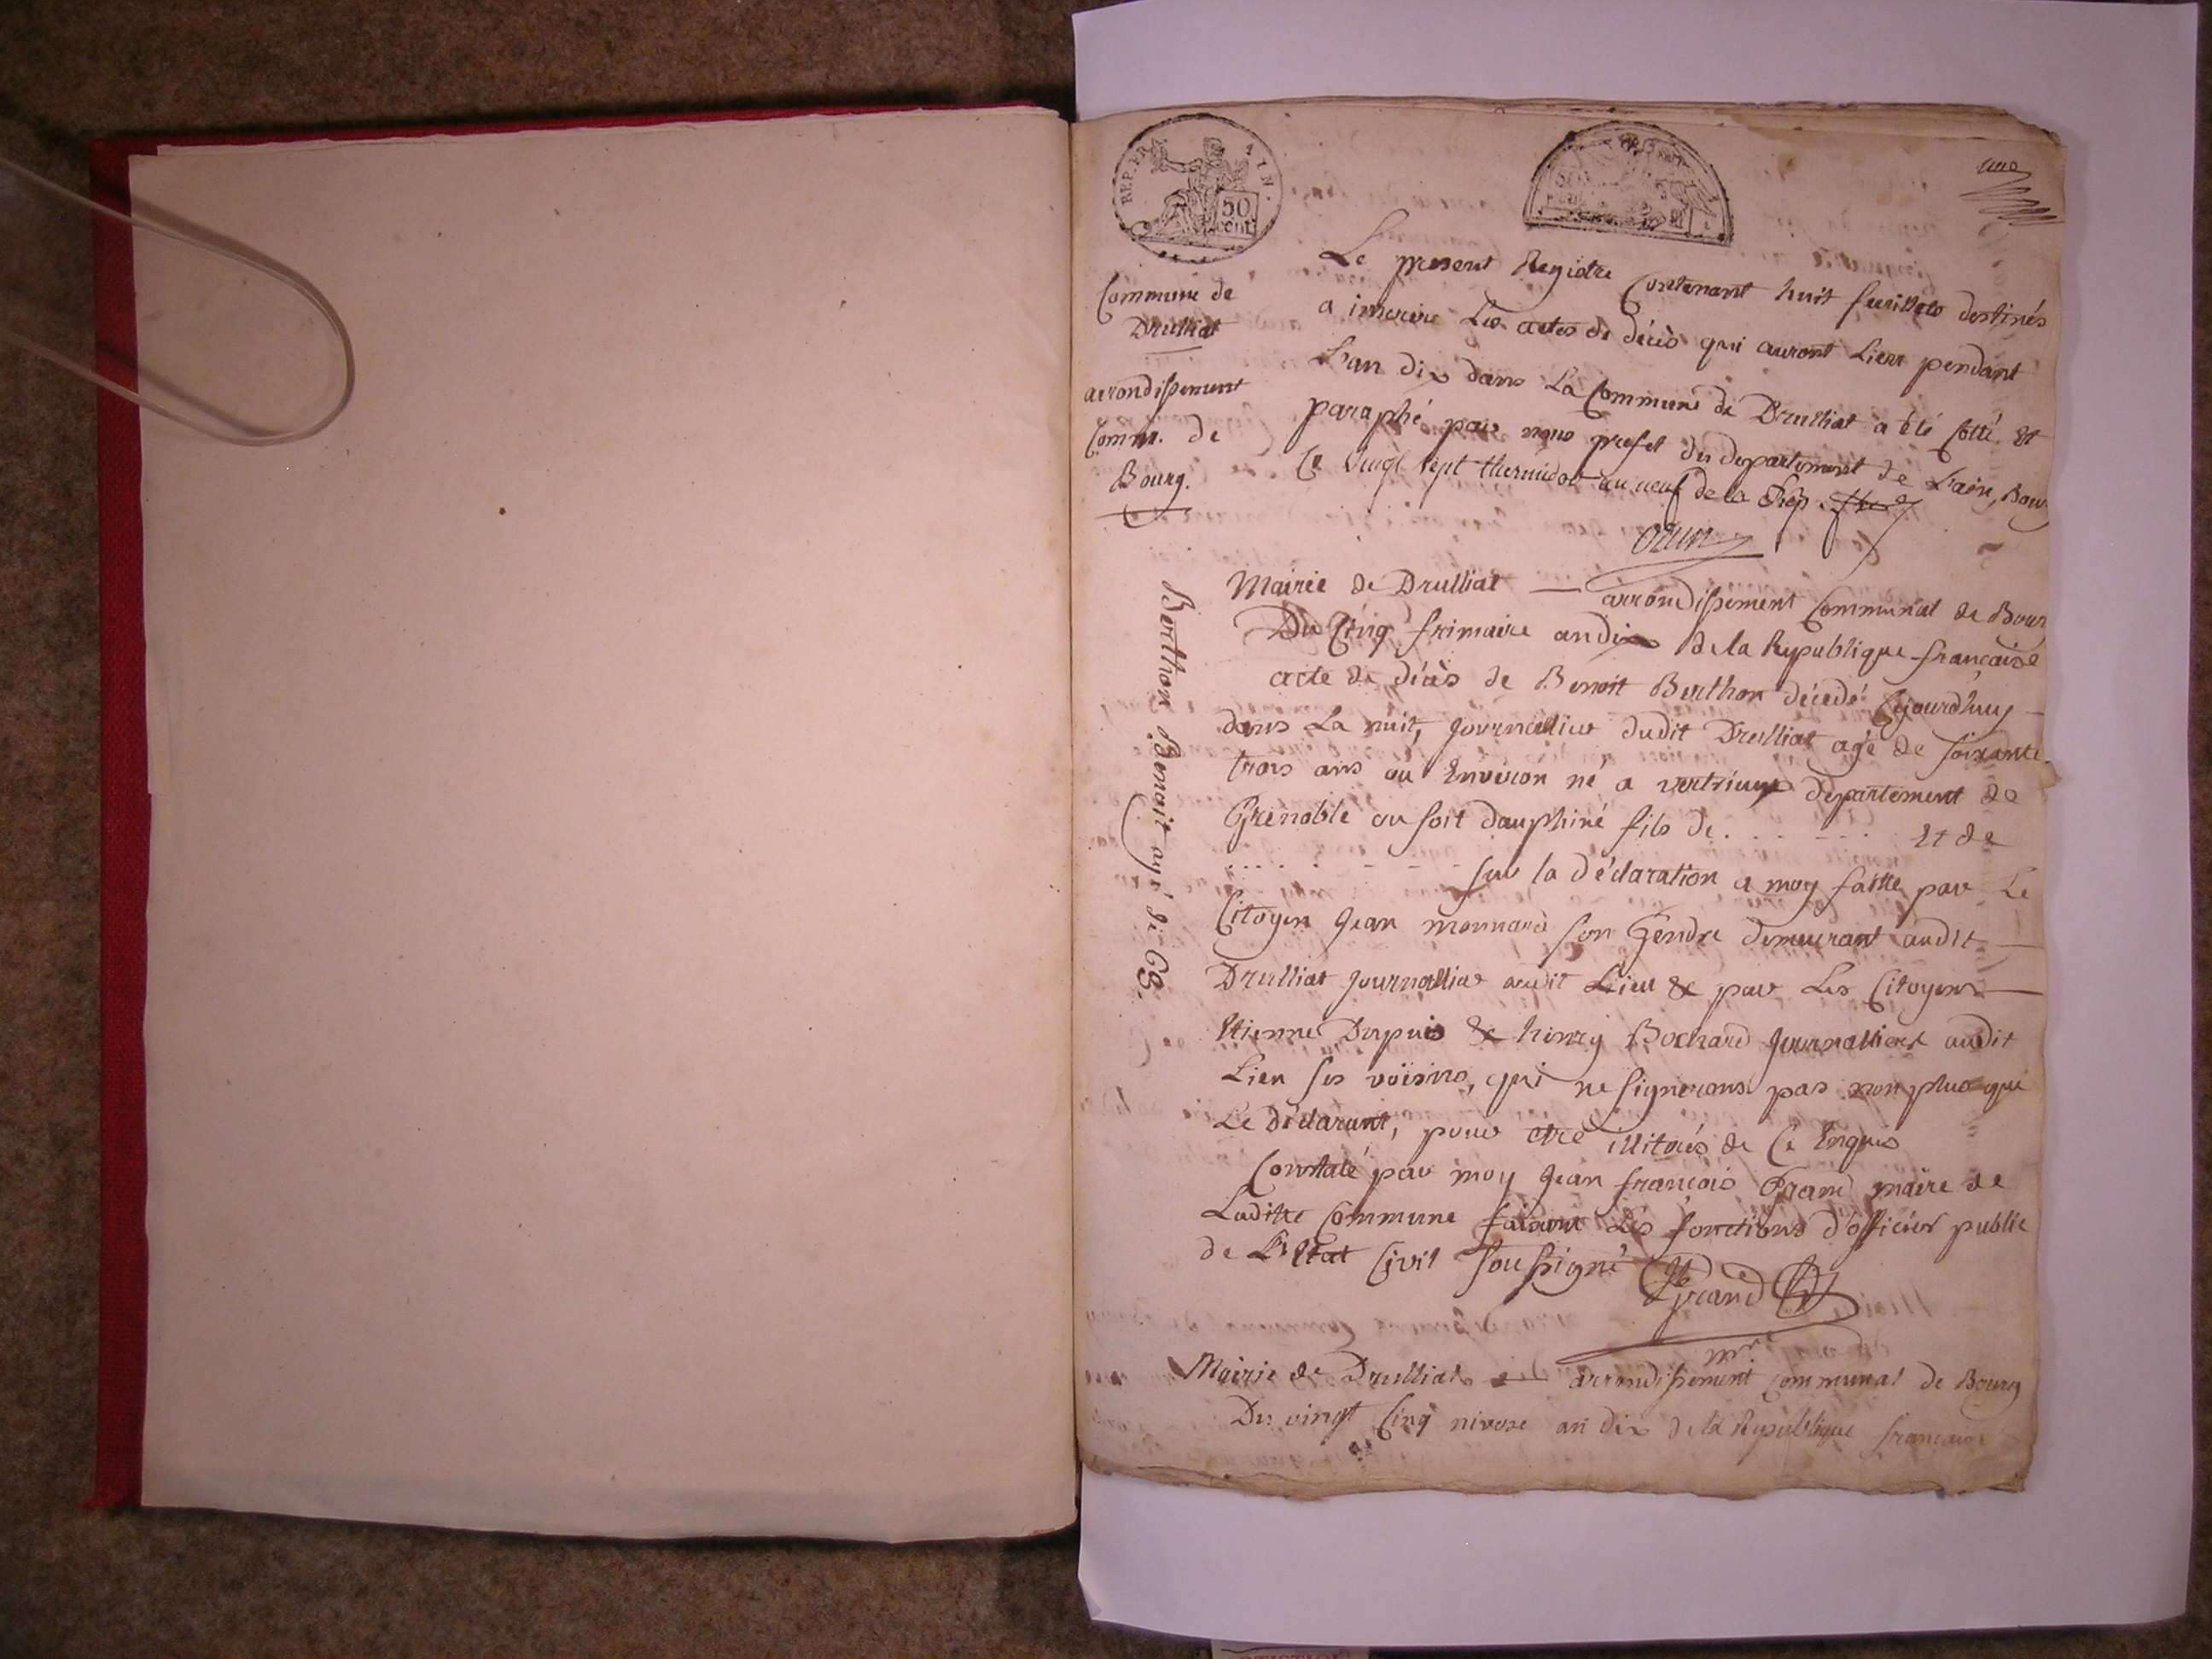 REP. FRA
AIN.
50
cent
une
Commune de
Drulliat
arrondissement
Comm. de
Bourg.
Le present Registre Contenant huit feuillets destinés
a inscrire Les actes de décès qui auront Lieu pendant
L'an dix dans La Commune de Drulliat a été Cotté et
paraphé par nous prefet du departement de L'ain, Bourg
Ce vingt sept thermidor an neuf de la Rep. fse
Ozun
Mairie de Drulliat — arrondissement Communal de Bour
Du Cinq frimaire an dix de la Republique française
acte de décès de Benoit Berthon décédé Cejourdhuy —
dans La nuit, Journallier dudit Drulliat agé de soixante
trois ans ou Environ né a vertrieux departement de
Grenoble ou soit dauphiné fils de . . . . . . Et de
. . . . . . . . sur la déclaration a moy faitte par Le
Citoyen Jean monnard son Gendre demeurant audit —
Drulliat Journallier audit Lieu & par Les Citoyens —
Etienne Dupuis & henry Bochard Journalliers audit
Lieu ses voisins, qui ne signerons pas non plus que
Le déclarant, pour etre illiterés de Ce Enquis
Constaté par moy Jean françois Grand maire de
Laditte Commune faisant Les fonctions d'officier public
de L'Etat Civil soussigné Grand
mre
Berthon Benoit agé de 63.
Mairie de Drulliat — arrondissement Communal de Bourg
Du vingt Cinq nivose an dix de la Republique française